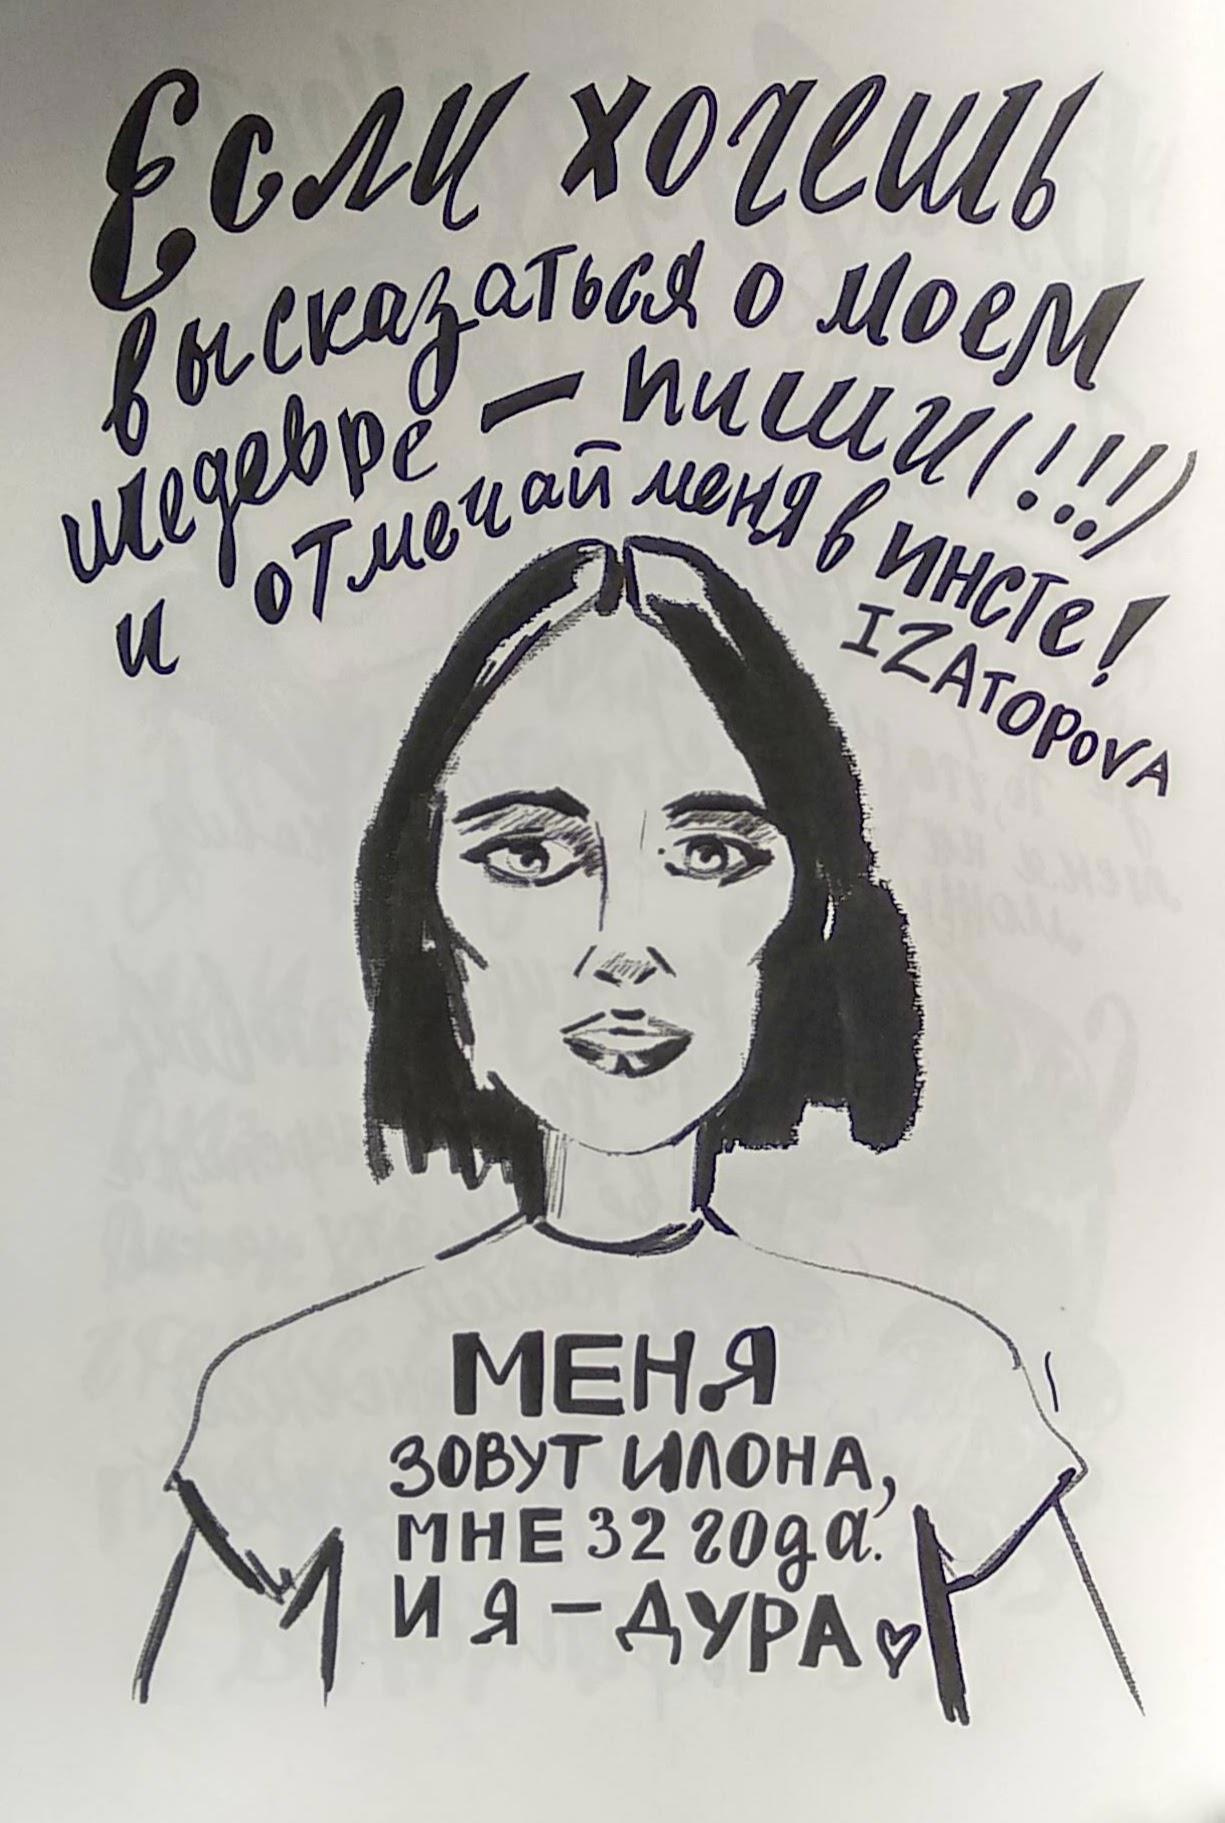 Если хочешь
высказаться о моем
шедевре – пиши(!!!)
и отмечай меня в инсте!
IZATOPOVA
МЕНЯ
ЗОВУТ ИЛОНА,
МНЕ 32 года.
И Я – ДУРА